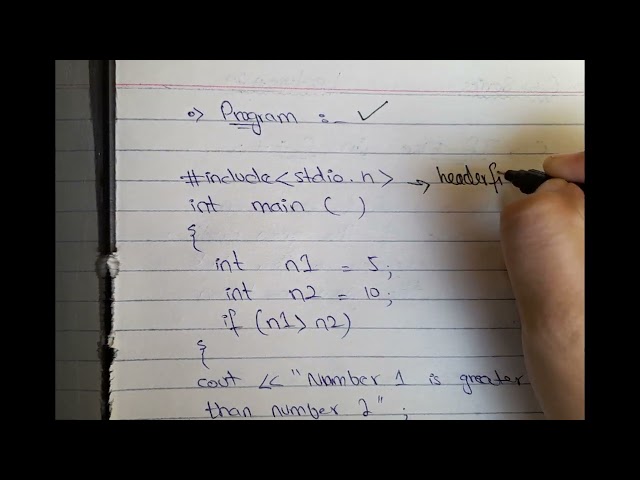 ⇒ Program :- ✓
#include<stdio.h> → headerfi
int main ( )
{
int n1 = 5;
int n2 = 10;
if (n1>n2)
{
cout << "Number 1 is greater
than number 2" ;